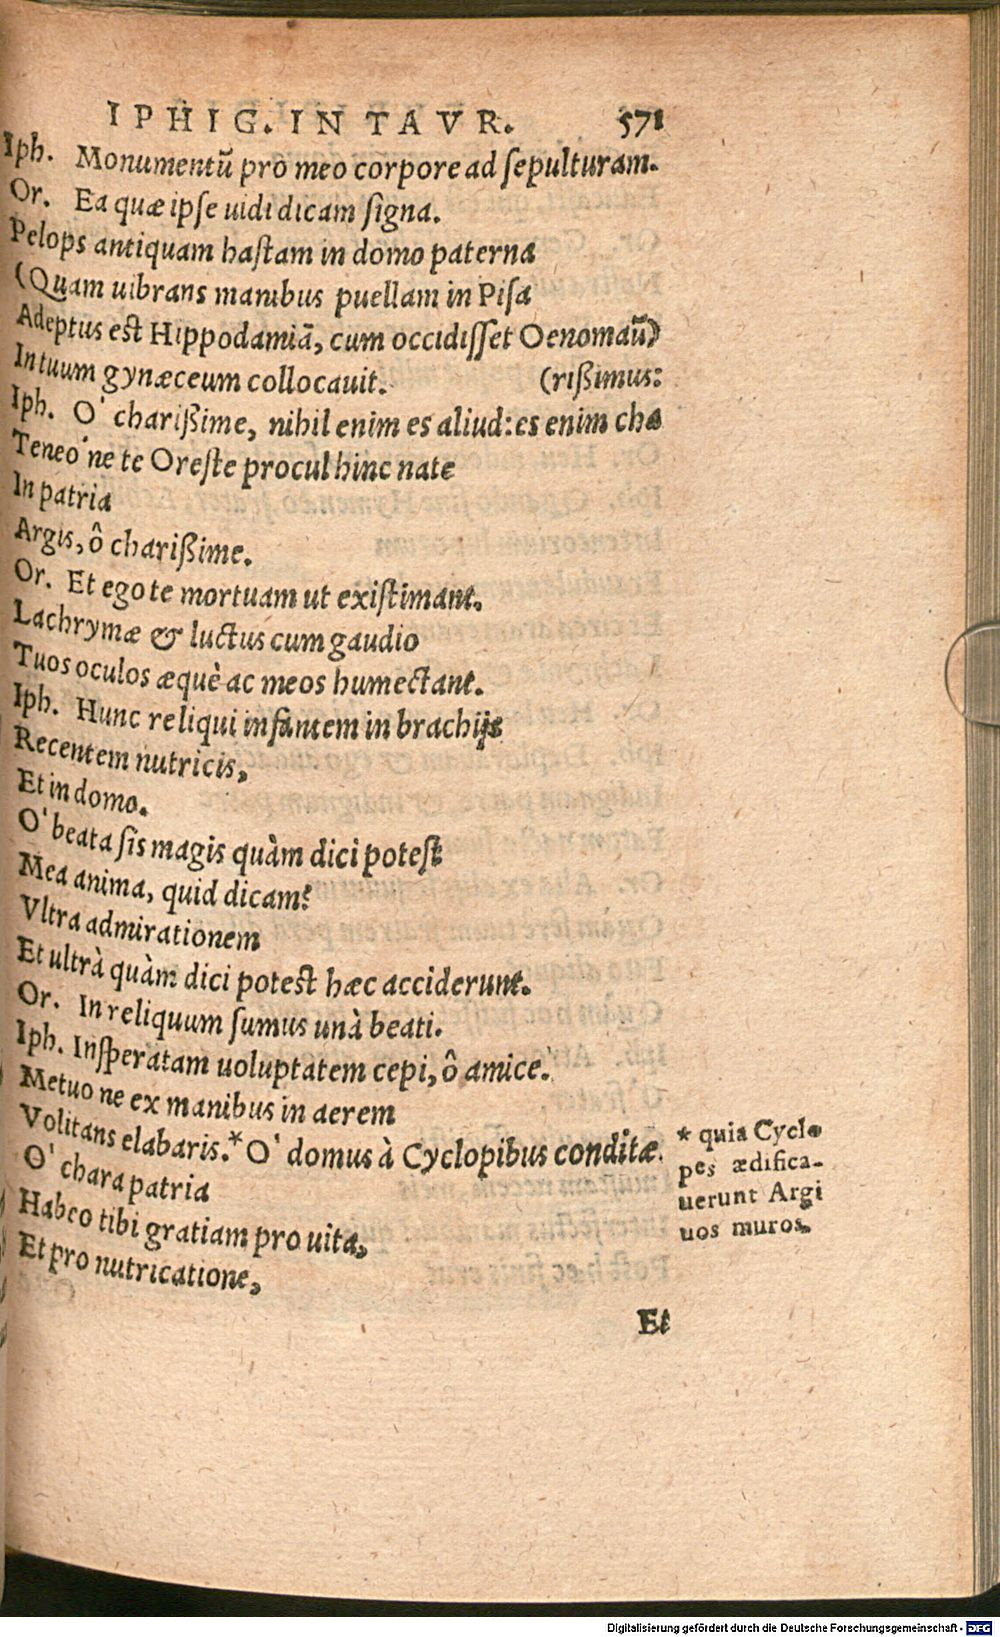 IPHIG. IN TAVR. 571
Iph. Monumentũ pro meo corpore ad ſepulturam.
Or. Ea quæ ipſe uidi dicam ſigna.
Pelops antiquam haſtam in domo paterna
(Quam uibrans manibus puellam in Piſa
Adeptus eſt Hippodamiã, cum occidiſſet Oenomaũ)
In tuum gynæceum collocauit. (rißimus:
Iph. O' charißime, nihil enim es aliud: es enim cha
Teneo ne te Oreſte procul hinc nate
In patria
Argis, ô charißime.
Or. Et ego te mortuam ut exiſtimant.
Lachrymæ & luctus cum gaudio
Tuos oculos æquè ac meos humectant.
Iph. Hunc reliqui infantem in brachijs
Recentem nutricis,
Et in domo.
O' beata ſis magis quàm dici poteſt
Mea anima, quid dicam?
Vltra admirationem
Et ultrà quàm dici poteſt hæc acciderunt.
Or. In reliquum ſumus unà beati.
Iph. Inſperatam uoluptatem cepi, ô amice.
Metuo ne ex manibus in aerem
Volitans elabaris.* O' domus à Cyclopibus conditæ.
O' chara patria
Habeo tibi gratiam pro uita,
Et pro nutricatione,
* quia Cyclo
pes ædifica-
uerunt Argi
uos muros.
Et
Digitalisierung gefördert durch die Deutsche Forschungsgemeinschaft - DFG